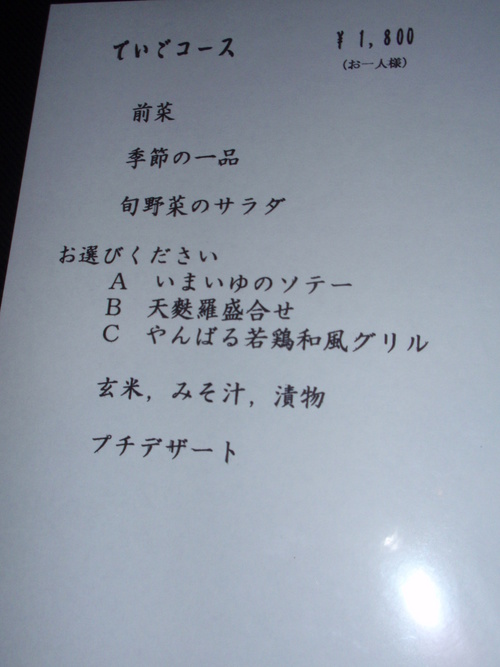 ていごコース ¥1,800
(お一人様)
前菜
季節の一品
旬野菜のサラダ
お選びください
A いまいゆのソテー
B 天麩羅盛合せ
C やんばる若鶏和風グリル
玄米,みそ汁,漬物
プチデザート